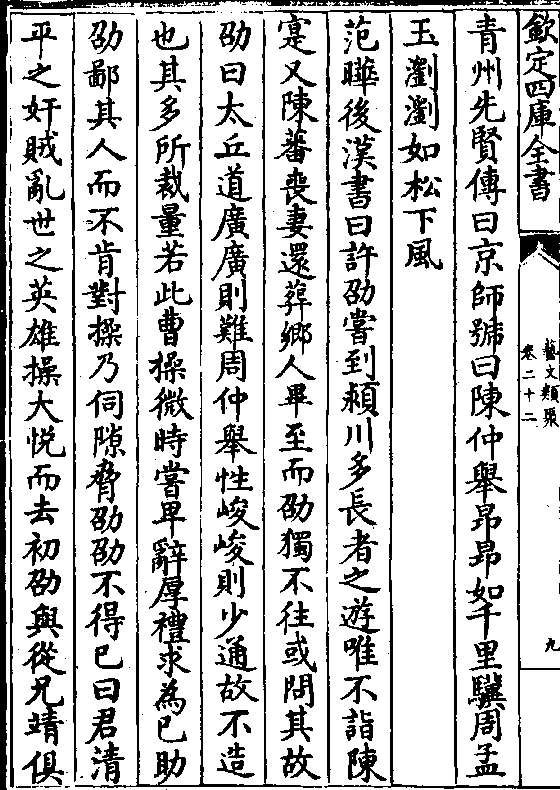 欽定四庫全書
藝文類聚
卷二十二
九
青州先賢傳曰京師號曰陳仲舉昂昂如千里驥周孟
玉瀏瀏如松下風
范曄後漢書曰許劭嘗到潁川多長者之遊唯不詣陳
寔又陳蕃喪妻還葬鄉人畢至而劭獨不往或問其故
劭曰太丘道廣廣則難周仲舉性峻峻則少通故不造
也其多所裁量若此曹操微時嘗卑辭厚禮求為已助
劭鄙其人而不肯對操乃伺隙脅劭劭不得已曰君清
平之奸賊亂世之英雄操大悅而去初劭與從兄靖俱